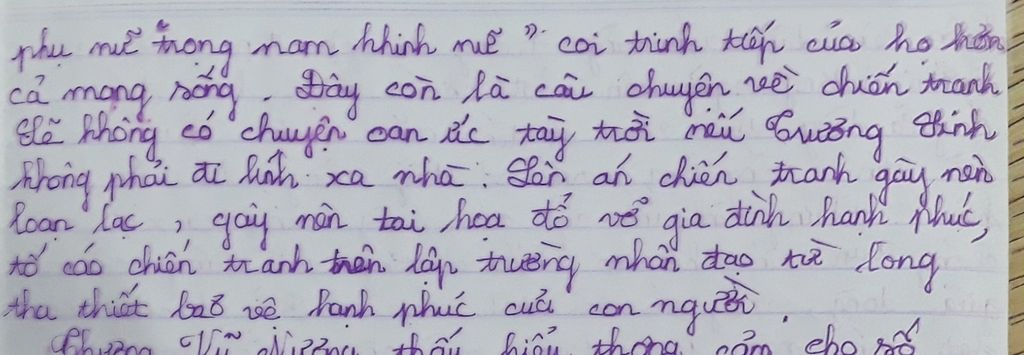 phụ nữ trọng nam khinh nữ" coi trinh tiếp của họ hơn
cả mạng sống. Đây còn là câu chuyện về chiến tranh
Sẽ không có chuyện oan ức tày trời nếu Trương Sinh
không phải đi lính xa nhà. Lên án chiến tranh gây nên
loạn lạc, gây nên tai họa đổ vỡ gia đình hạnh phúc,
tố cáo chiến tranh trên lập trường nhân đạo từ lòng
tha thiết bảo vệ hạnh phúc của con người.
Vũ Nương thấu hiểu thông cảm cho số